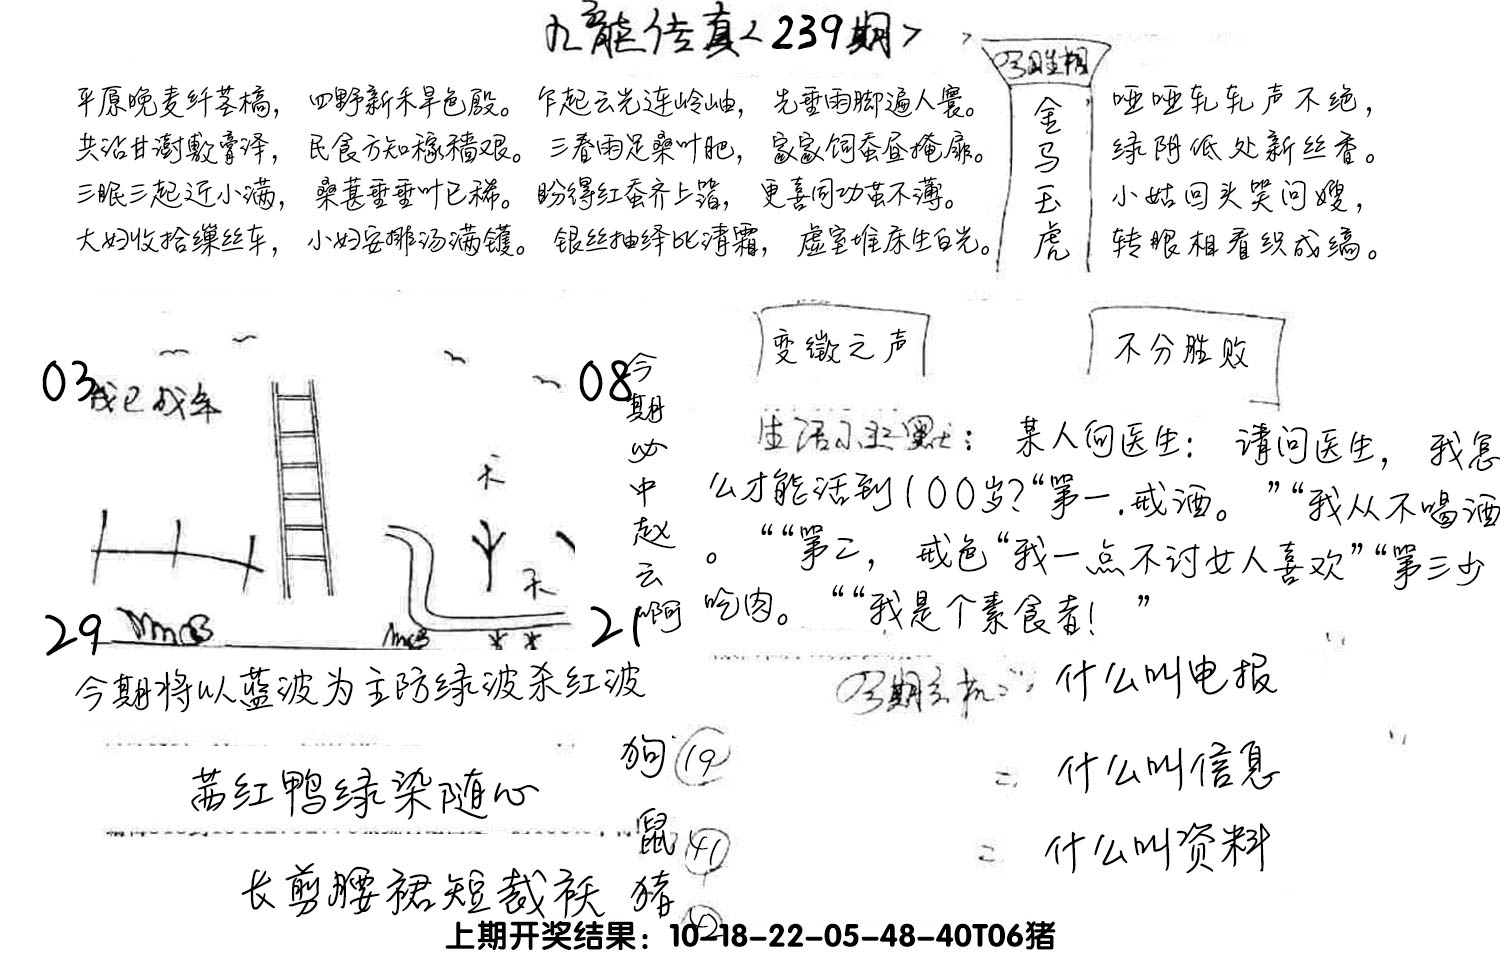 九龙传真<239期>
平原晚麦纤茎槁， 四野新禾旱色殷。 乍起云光连岭岫， 先垂雨脚遍人寰。
共沾甘澍敷膏泽， 民食方知稼穑艰。 三春雨足桑叶肥， 家家饲蚕昼掩扉。
三眠三起近小满， 桑葚垂垂叶已稀。 盼得红蚕齐上箔， 更喜同功茧不薄。
大妇收拾缫丝车， 小妇安排汤满镬。 银丝抽绎比清霜， 虚室堆床生白光。
今日生相
金马玉虎
哑哑轧轧声不绝，
绿阴低处新丝香。
小姑回头笑问嫂，
转眼相看织成缟。
变徵之声
不分胜败
03
我已成年
08
天
天
29
21
今期必中赵云啊
生活小幽默： 某人向医生： 请问医生， 我怎
么才能活到100岁？“第一.戒酒。 ”“我从不喝酒
。 ““第二， 戒色“我一点不讨女人喜欢”“第三少
吃肉。 ““我是个素食者！ ”
今期将以蓝波为主防绿波杀红波
今期玄机: 什么叫电报
二 什么叫信息
三 什么叫资料
茜红鸭绿染随心
长剪腰裙短裁袄
狗 19
鼠 41
猪
上期开奖结果：10-18-22-05-48-40T06猪